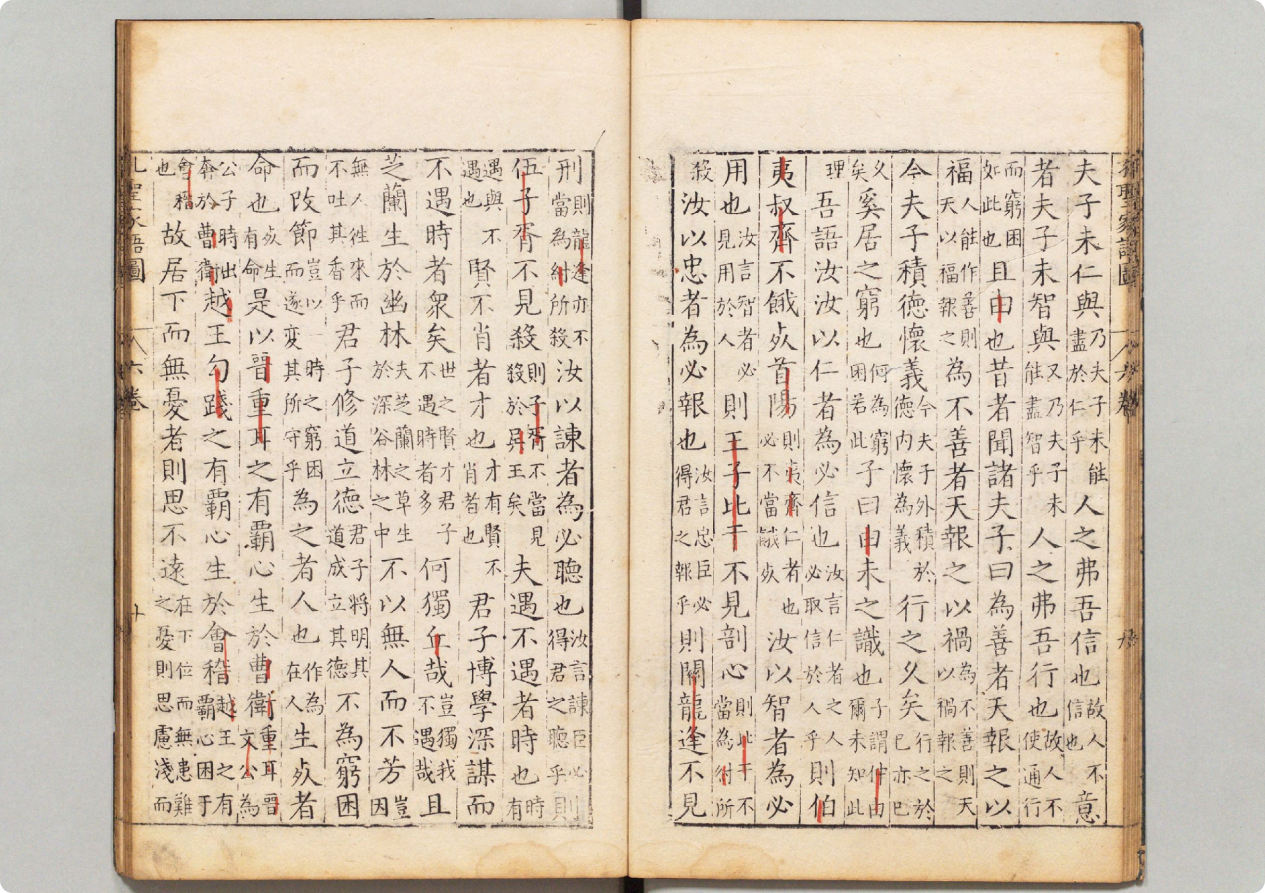 孔聖家語圖
夫子未仁與乃夫子未能盡於仁乎人之弗吾信也故人不信也意
者夫子未智與又乃夫子未能盡智乎人之弗吾行也故人不使通行
而窮困如此也且由也昔者聞諸夫子曰為善者天報之以
福人能作善則天以福報之為不善者天報之以禍為不善則天以禍報之
今夫子積德懷義今夫子外積於德內懷為義行之久矣行之於已亦已
久矣奚居之窮也何為窮困若此子曰由未之識也子謂仲由爾未知此
理吾語汝汝以仁者為必信也汝言仁者之人必取信於人乎則伯
夷叔齊不餓死首陽則夷齊仁者也必不當餓死汝以智者為必
用也汝言智者必見用於人則王子比干不見剖心則比干不當為紂所
殺汝以忠者為必報也汝言忠臣必得君之報乎則關龍逢不見
刑則龍逢亦不當為紂所殺汝以諫者為必聽也汝言諫臣必得君之聽乎則
伍子胥不見殺則子胥不當見殺於吳王矣夫遇不遇者時也時有
遇與不遇也賢不肖者才也才有賢不肖者也君子博學深謀而
不遇時者衆矣世之賢才君子不遇時者多何獨丘哉豈獨我不遇哉且
芝蘭生於幽林夫芝蘭之草生於深谷林之中不以無人而不芳豈因
無人徃來而不吐其香乎君子修道立德君子將明其道成立其德不為窮困
而改節豈以一時之窮困而遂變其所守乎為之者人也作為在人生死者
命也死生有命是以晉重耳之有覇心生於曹衛重耳晉文公為
公子時出奔於曹衛越王勾踐之有覇心生於會稽越王之有覇心困于
會稽也故居下而無憂者則思不遠在下位而無患難之憂則思慮淺而
孔聖家語圖 六卷 十